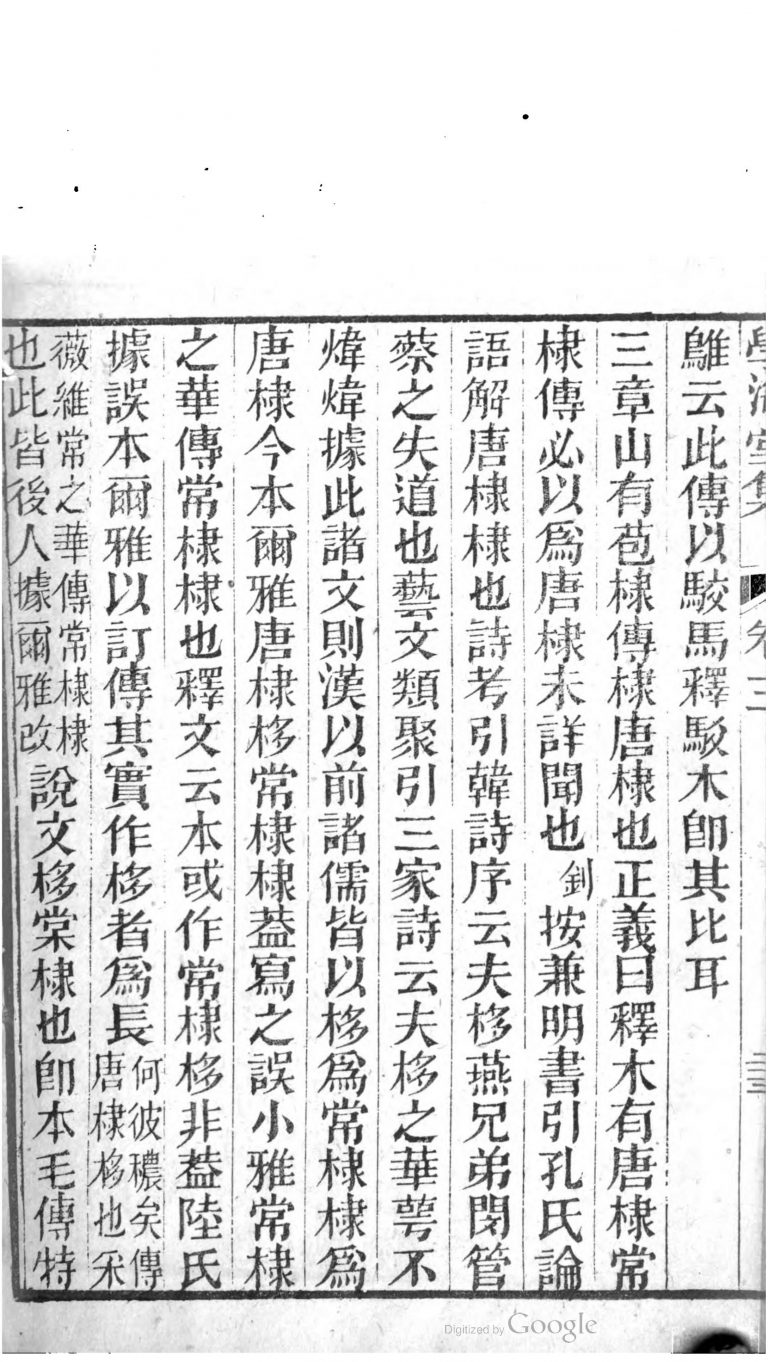 學海堂集 卷三
鵻云此傳以駮馬釋駮木卽其比耳
三章山有苞棣傳棣唐棣也正義曰釋木有唐棣常
棣傳必以爲唐棣未詳聞也釗按兼明書引孔氏論
語解唐棣棣也詩考引韓詩序云夫栘燕兄弟閔管
蔡之失道也藝文類聚引三家詩云夫栘之華萼不
煒煒據此諸文則漢以前諸儒皆以栘爲常棣棣爲
唐棣今本爾雅唐棣栘常棣棣葢寫之誤小雅常棣
之華傳常棣棣也釋文云本或作常棣栘非葢陸氏
據誤本爾雅以訂傳其實作栘者爲長何彼穠矣傳
唐棣栘也采
薇維常之華傳常棣棣
也此皆後人據爾雅改說文栘棠棣也卽本毛傳特
Digitized by Google